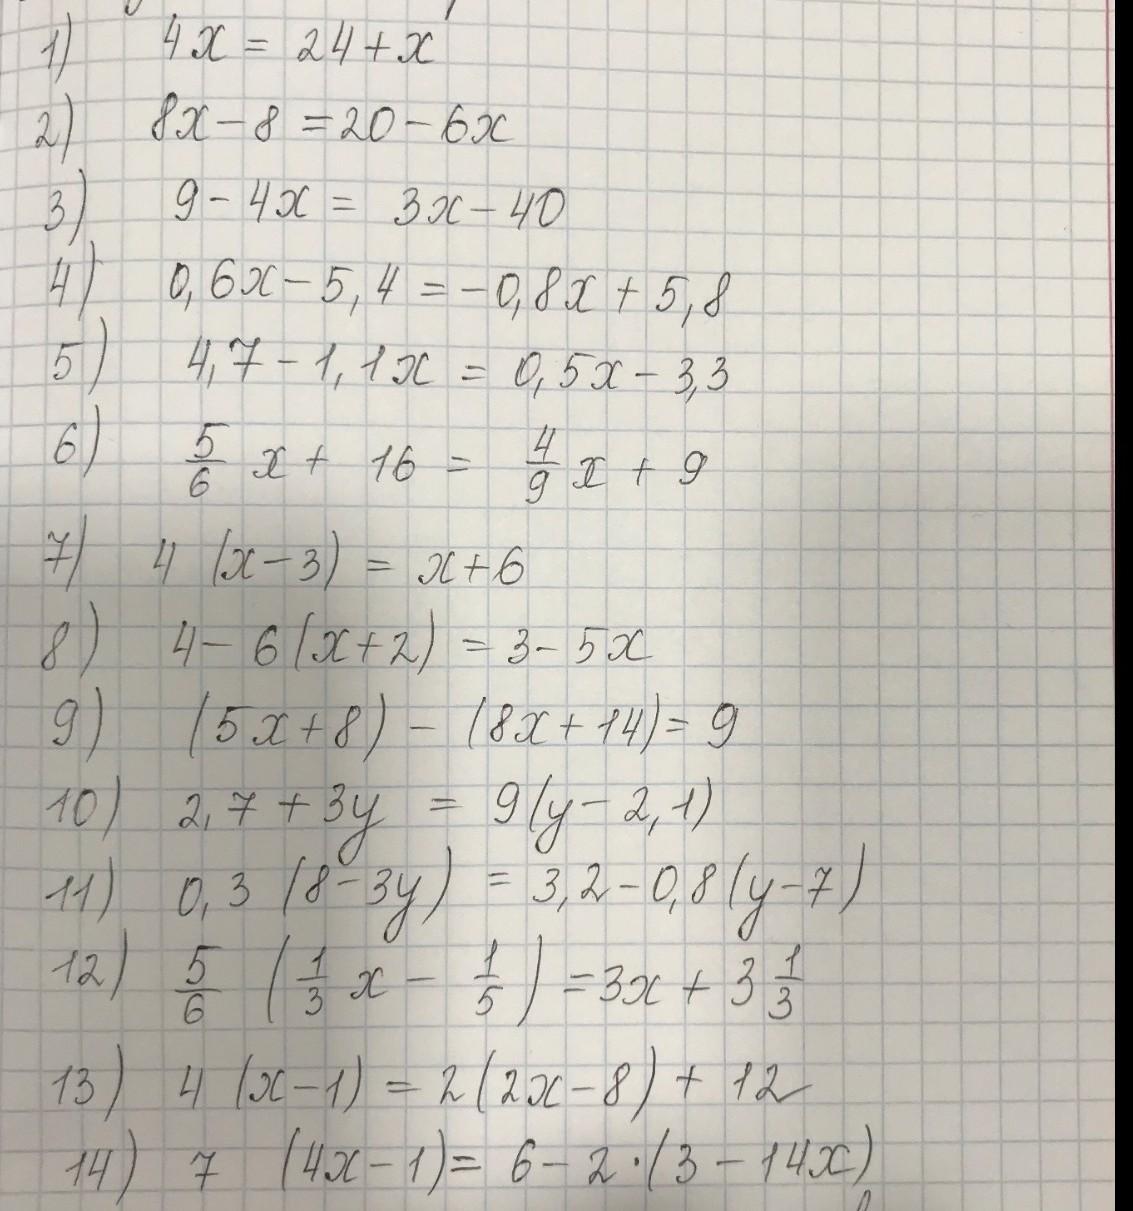 1) 4x = 24 + x
2) 8x - 8 = 20 - 6x
3) 9 - 4x = 3x - 40
4) 0,6x - 5,4 = -0,8x + 5,8
5) 4,7 - 1,1x = 0,5x - 3,3
6) 5/6 x + 16 = 4/9 x + 9
7) 4 (x - 3) = x + 6
8) 4 - 6(x + 2) = 3 - 5x
9) (5x + 8) - (8x + 14) = 9
10) 2,7 + 3y = 9(y - 2,1)
11) 0,3 (8 - 3y) = 3,2 - 0,8(y - 7)
12) 5/6 (1/3 x - 1/5) = 3x + 3 1/3
13) 4 (x - 1) = 2(2x - 8) + 12
14) 7 (4x - 1) = 6 - 2·(3 - 14x)